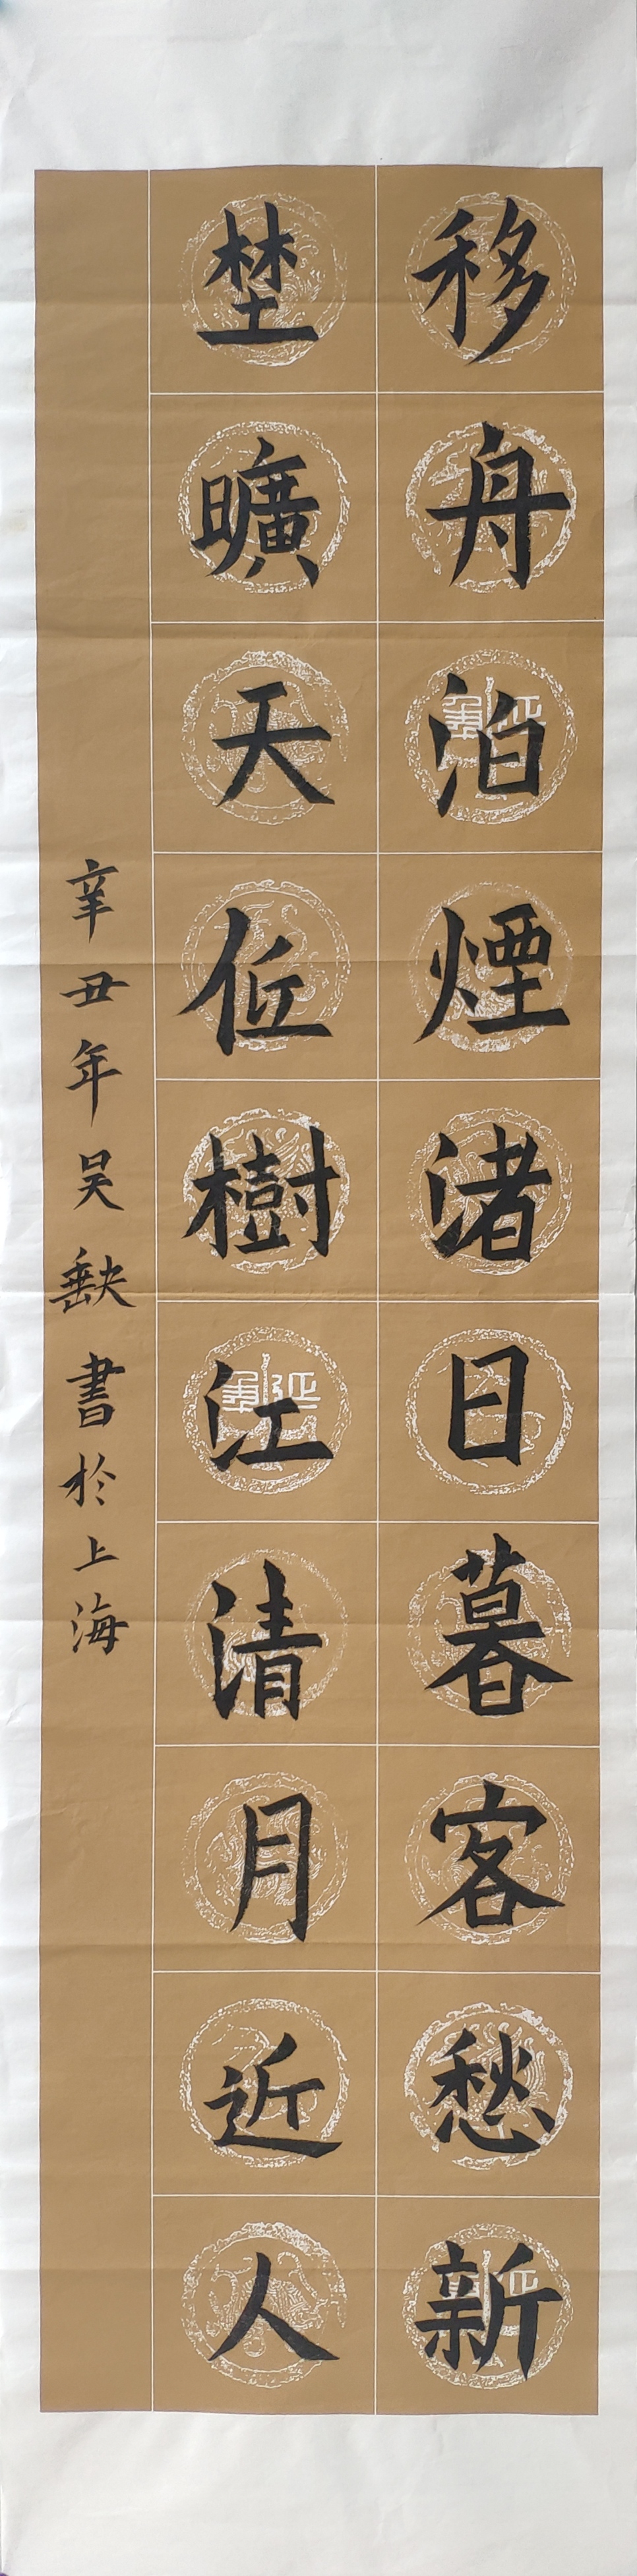 移舟泊煙渚日暮客愁新
埜曠天低樹江清月近人
辛丑年吴書於上海